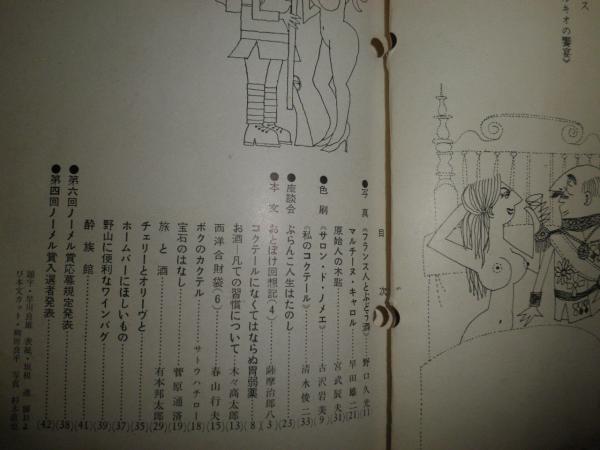 ス
キオの饗宴》
目次
●写真《フランス人とぶどう酒》……野口久光(11)
マルチーヌ・キャロル……早田雄二(21)
原始人の木匙……宮武辰夫(31)
●色刷《サロン・ド・ノメエ》……古沢岩美(9)
《私のコクテール》……清水俊二(33)
●座談会 ぶらんこ人生はたのし……(23)
●本文 おとぼけ回想記(4)……薩摩治郎八(3)
コクテールになくてはならぬ胃弱薬……(8)
お酒・凡ての習慣について……木々高太郎(13)
西洋合財袋(6)……春山行夫(15)
ボクのカクテル……サトウハチロー(18)
宝石のはなし……菅原通済(19)
旅と酒……有本邦太郎(29)
チェリーとオリーヴと……(35)
ホームバーにほしいもの……(37)
野山に便利なワインバグ……(39)
酔族館……(41)
●第六回ノーメル賞応募規定発表……(38)
●第四回ノーメル賞入選者発表……(42)
題字・早川良雄 表紙・坂根進 扉および本文カット・柳原良平 写真・杉木直也